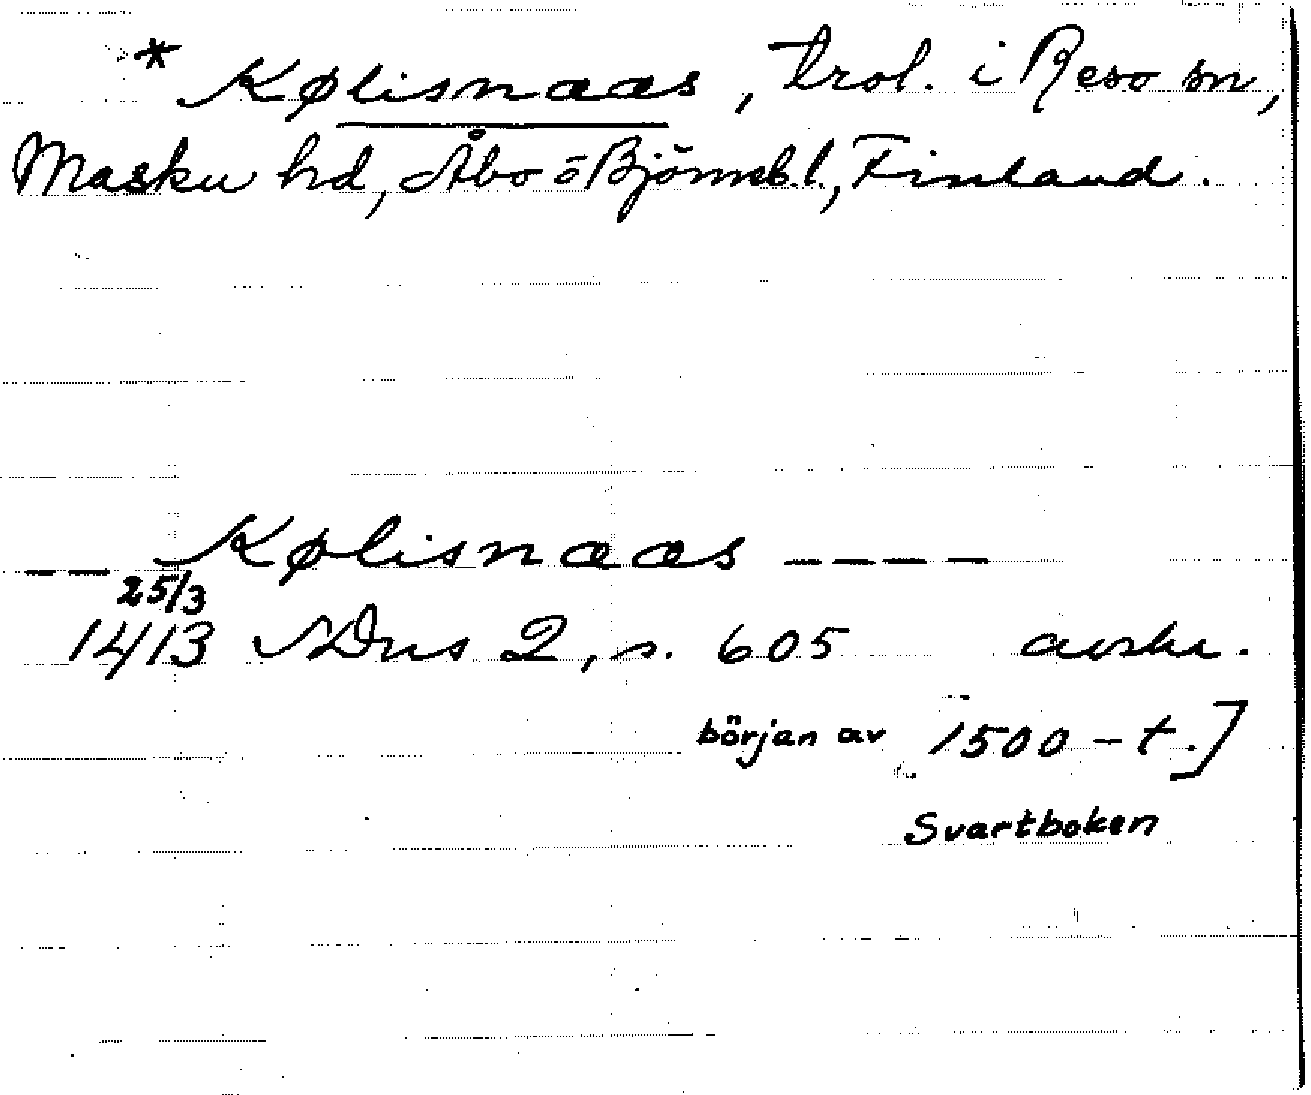 * Kølisnaas, trol. i Reso sn,
Masku hd, Åbo o Björneb. l., Finland.
__ Kølisnaas ____
25/3
1413 NDns 2, s. 605 avskr.
början av 1500-t.]
Svartboken